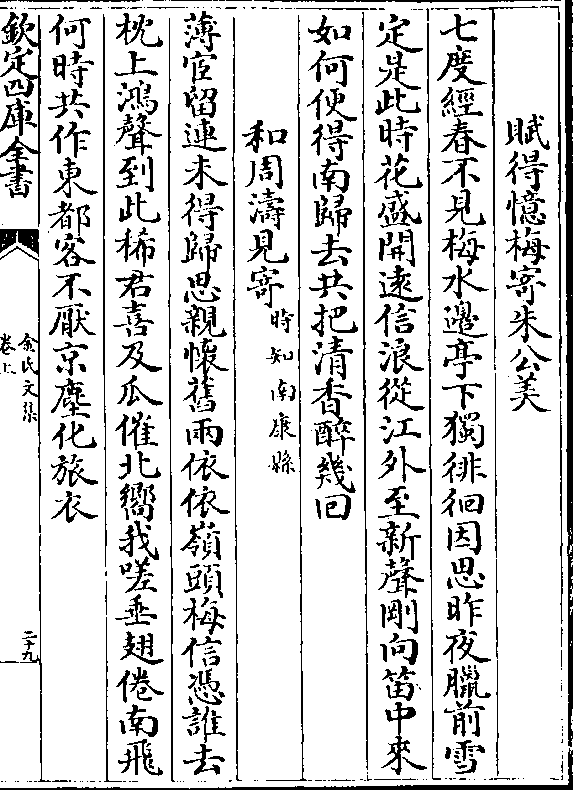 賦得憶梅寄朱公美
七度經春不見梅水邊亭下獨徘徊因思昨夜臘前雪
定是此時花盛開逺信浪從江外至新聲剛向笛中來
如何便得南歸去共把清香醉幾回
和周濤見寄時知南康縣
薄宦留連未得歸思親懐舊兩依依嶺頭梅信憑誰去
枕上鴻聲到此稀君喜及瓜催北嚮我嗟垂翅倦南飛
何時共作東都客不厭京塵化旅衣
欽定四庫全書
余氏文集
卷上
二十九